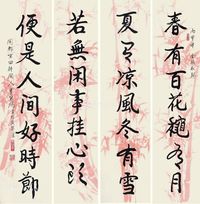 春有百花穐有月
夏有凉風冬有雪
若無闲事挂心頭
便是人间好時節